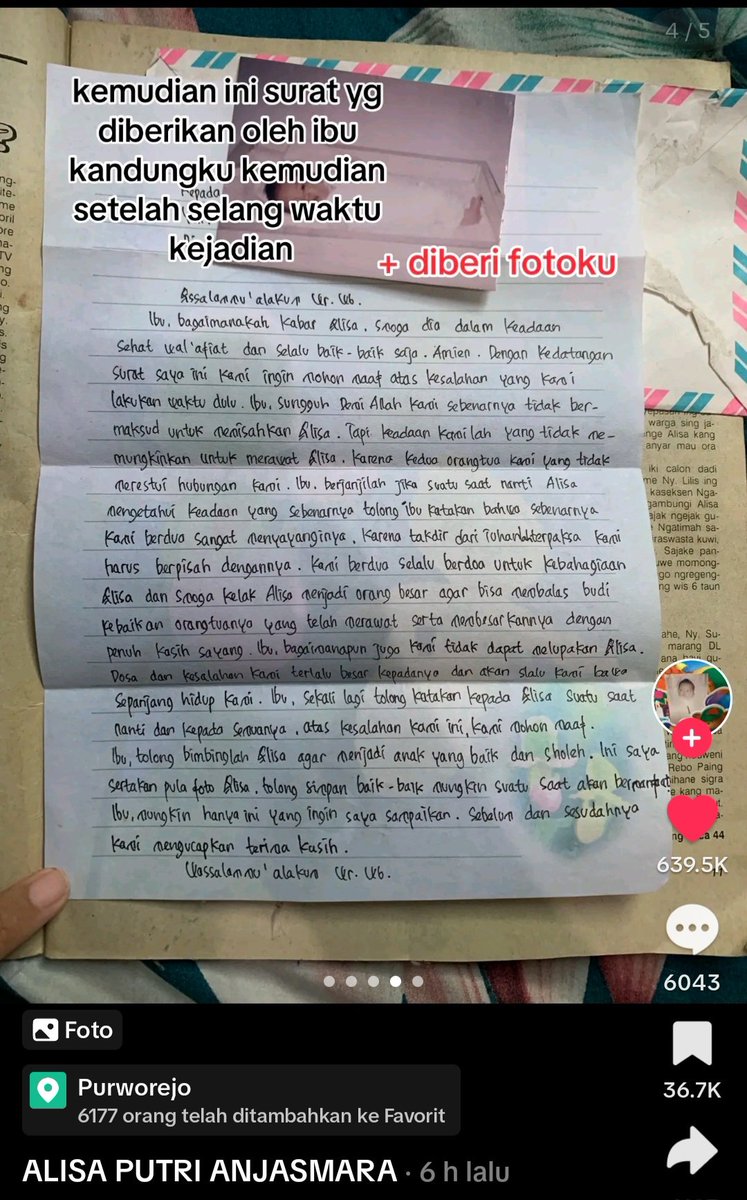 4 / 5
kemudian ini surat yg
diberikan oleh ibu
kandungku kemudian
setelah selang waktu
kejadian
+ diberi fotoku
Kepada
Assalammu'alakum Wr. Wb.
Ibu, bagaimanakah kabar Alisa, Smoga dia dalam keadaan
sehat wal'afiat dan selalu baik-baik saja. Amien. Dengan kedatangan
surat saya ini kami ingin mohon maaf atas kesalahan yang kami
lakukan waktu dulu. Ibu, sungguh Demi Allah kami sebenarnya tidak ber-
maksud untuk memisahkan Alisa. Tapi keadaan kamilah yang tidak me-
mungkinkan untuk merawat Alisa. Karena kedua orangtua kami yang tidak
merestui hubungan kami. Ibu, berjanjilah jika suatu saat nanti Alisa
mengetahui keadaan yang sebenarnya tolong ibu katakan bahwa sebenarnya
kami berdua sangat menyayanginya, karena takdir dari Tuhanlah terpaksa kami
harus berpisah dengannya. Kami berdua selalu berdoa untuk kebahagiaan
Alisa dan Smoga kelak Alisa menjadi orang besar agar bisa membalas budi
kebaikan orangtuanya yang telah merawat serta membesarkannya dengan
penuh kasih sayang. Ibu, bagaimanapun juga kami tidak dapat melupakan Alisa.
Dosa dan kesalahan kami terlalu besar kepadanya dan akan slalu kami bawa
Sepanjang hidup kami. Ibu, sekali lagi tolong katakan kepada Alisa suatu saat
nanti dan kepada semuanya, atas kesalahan kami ini, kami mohon maaf.
Ibu, tolong bimbinglah Alisa agar menjadi anak yang baik dan sholeh. Ini saya
sertakan pula foto Alisa, tolong simpan baik-baik mungkin suatu saat akan bermanfaat
Ibu, mungkin hanya ini yang ingin saya sampaikan. Sebelum dan sesudahnya
kami mengucapkan terima kasih.
Wassalammu'alakum Wr. Wb.
warga sing ja-
nge Alisa kang
anyar mau ora
iki calon dadi
me Ny. Lilis ing
kaseksen Nga-
gambungi Alisa
ajak ngejak gu-
Ngatimah sa-
raswasta kuwi.
Sajake pan-
uwe momong-
go ngregeng-
ng wis 6 taun
ahe, Ny. Su-
marang DL
Rebo Paing
ihane sigra
e kang ma-
44
639.5K
6043
Foto
36.7K
Purworejo
6177 orang telah ditambahkan ke Favorit
ALISA PUTRI ANJASMARA · 6 h lalu